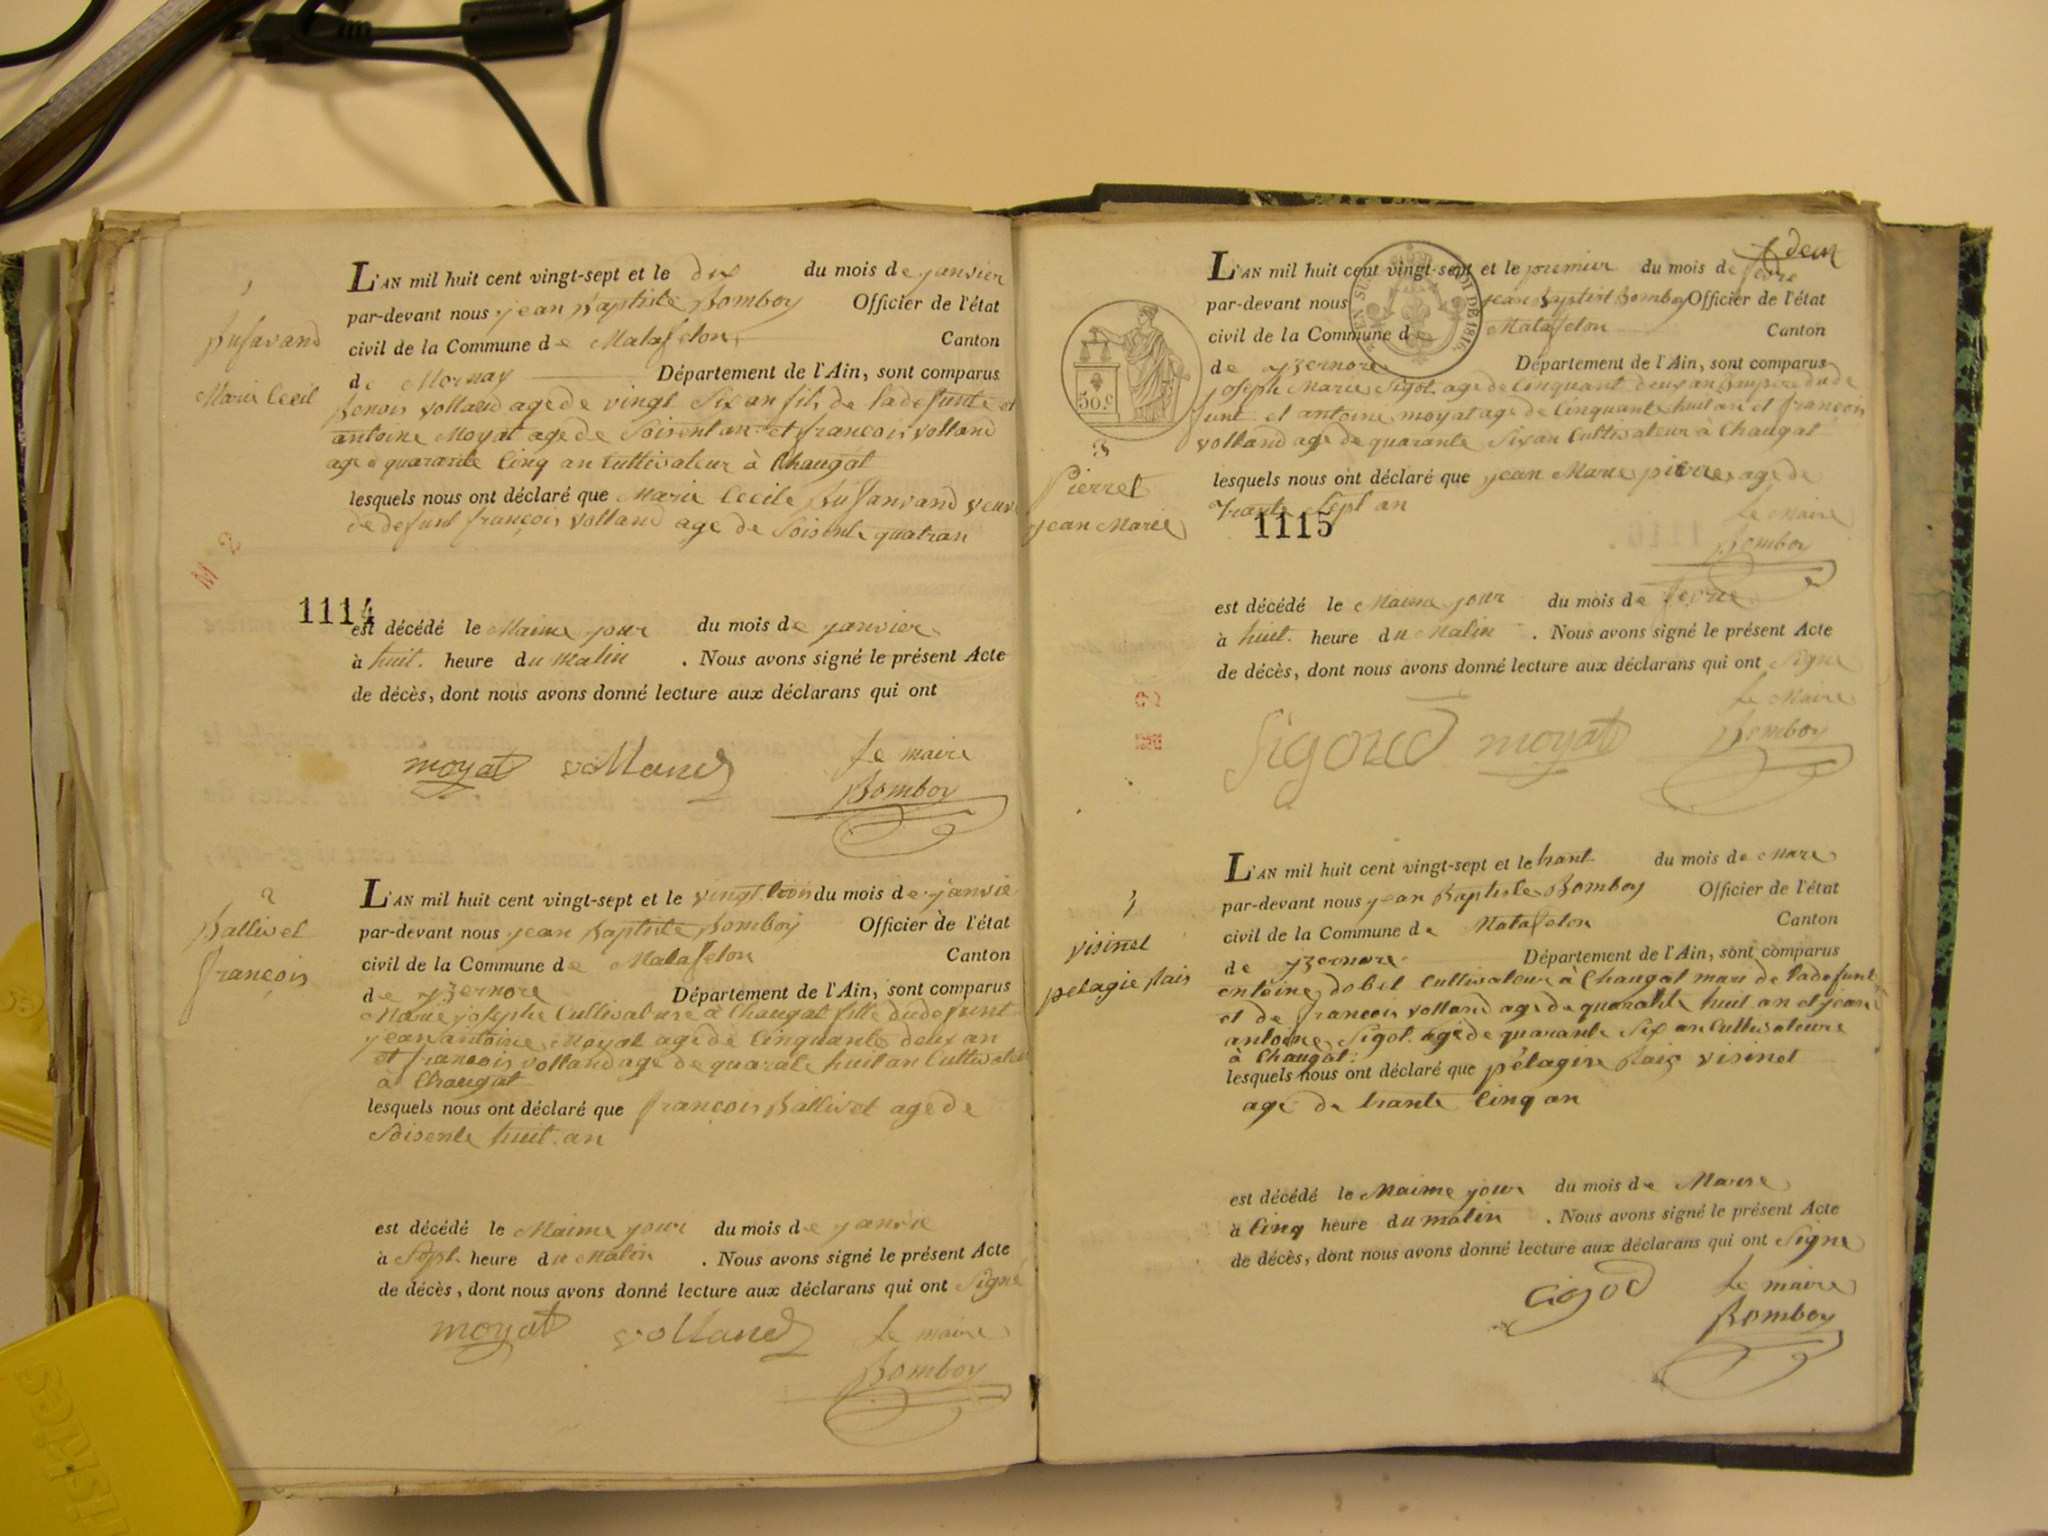 1
fusavand
Marie Cecil
L'AN mil huit cent vingt-sept et le dix du mois de janvier
par-devant nous jean Baptiste Bomboy Officier de l'état
civil de la Commune de Matafelon Canton
de Mornay Département de l'Ain, sont comparus
benois volland age de vingt six an fils de ladefunte et
antoine Moyat age de soisent an et françois volland
age d quarante Cinq an Cultivateur à Chaugat
lesquels nous ont déclaré que Marie Cecile fusanvand veuve
de defunt françois volland age de soisente quatran
M 2
1114
est décédé le Maime jour du mois de janvier
à huit heure du Matin . Nous avons signé le présent Acte
de décès, dont nous avons donné lecture aux déclarans qui ont
moyat volland Le maire
Bomboy
2
Ballivet
françois
L'AN mil huit cent vingt-sept et le vingt trois du mois de janvie
par-devant nous jean Baptiste Bomboy Officier de l'état
civil de la Commune de Matafelon Canton
de yzernore Département de l'Ain, sont comparus
Marie josephe Cultivature à Chaugat fille dudefunt
jean antoine Moyat age de Cinquante deux an
et françois volland age de quarate huit an Cultivateur
à Chaugat
lesquels nous ont déclaré que françois Ballivet age de
soisente huit an
est décédé le Maime jour du mois de janvie
à sept heure du Matin . Nous avons signé le présent Acte
de décès, dont nous avons donné lecture aux déclarans qui ont Signé
moyat volland Le maire
Bomboy
deux
L'AN mil huit cent vingt-sept et le premier du mois de fevre
par-devant nous jean Baptist Bomboy Officier de l'état
civil de la Commune de Matafelon Canton
de yzernore Département de l'Ain, sont comparus
joseph Marie Sigot age de Cinquant deux an beaupere dude
funt et antoine moyat age de Cinquante huit an et françois
volland age de quarante Six an Cultivateur à Chaugat
50.c
3
Pierret
jean Marie
lesquels nous ont déclaré que jean Marie pierre age de
trante Sept an
1115
Le Maire
Bomboy
est décédé le Maime jour du mois de fevrie
à huit heure du Matin . Nous avons signé le présent Acte
de décès, dont nous avons donné lecture aux déclarans qui ont Signe
Sigoud moyat Le Maire
Bomboy
visinet
pelagie lais
L'AN mil huit cent vingt-sept et le trant du mois de Mare
par-devant nous jean Baptiste Bomboy Officier de l'état
civil de la Commune de Matafelon Canton
de yzernore Département de l'Ain, sont comparus
entoine dobet Cultivateur à Chaugat mari de ladefunt
et de francois volland age de quarante huit an et jean
antoine Sigot age de quarante Six an Cultivateure
à Chaugat
lesquels nous ont déclaré que pélagire lais visinet
age de trante Cinq an
est décédé le Maime jour du mois de Marse
à Cinq heure du matin . Nous avons signé le présent Acte
de décès, dont nous avons donné lecture aux déclarans qui ont Signe
Cigod Le maire
Bomboy